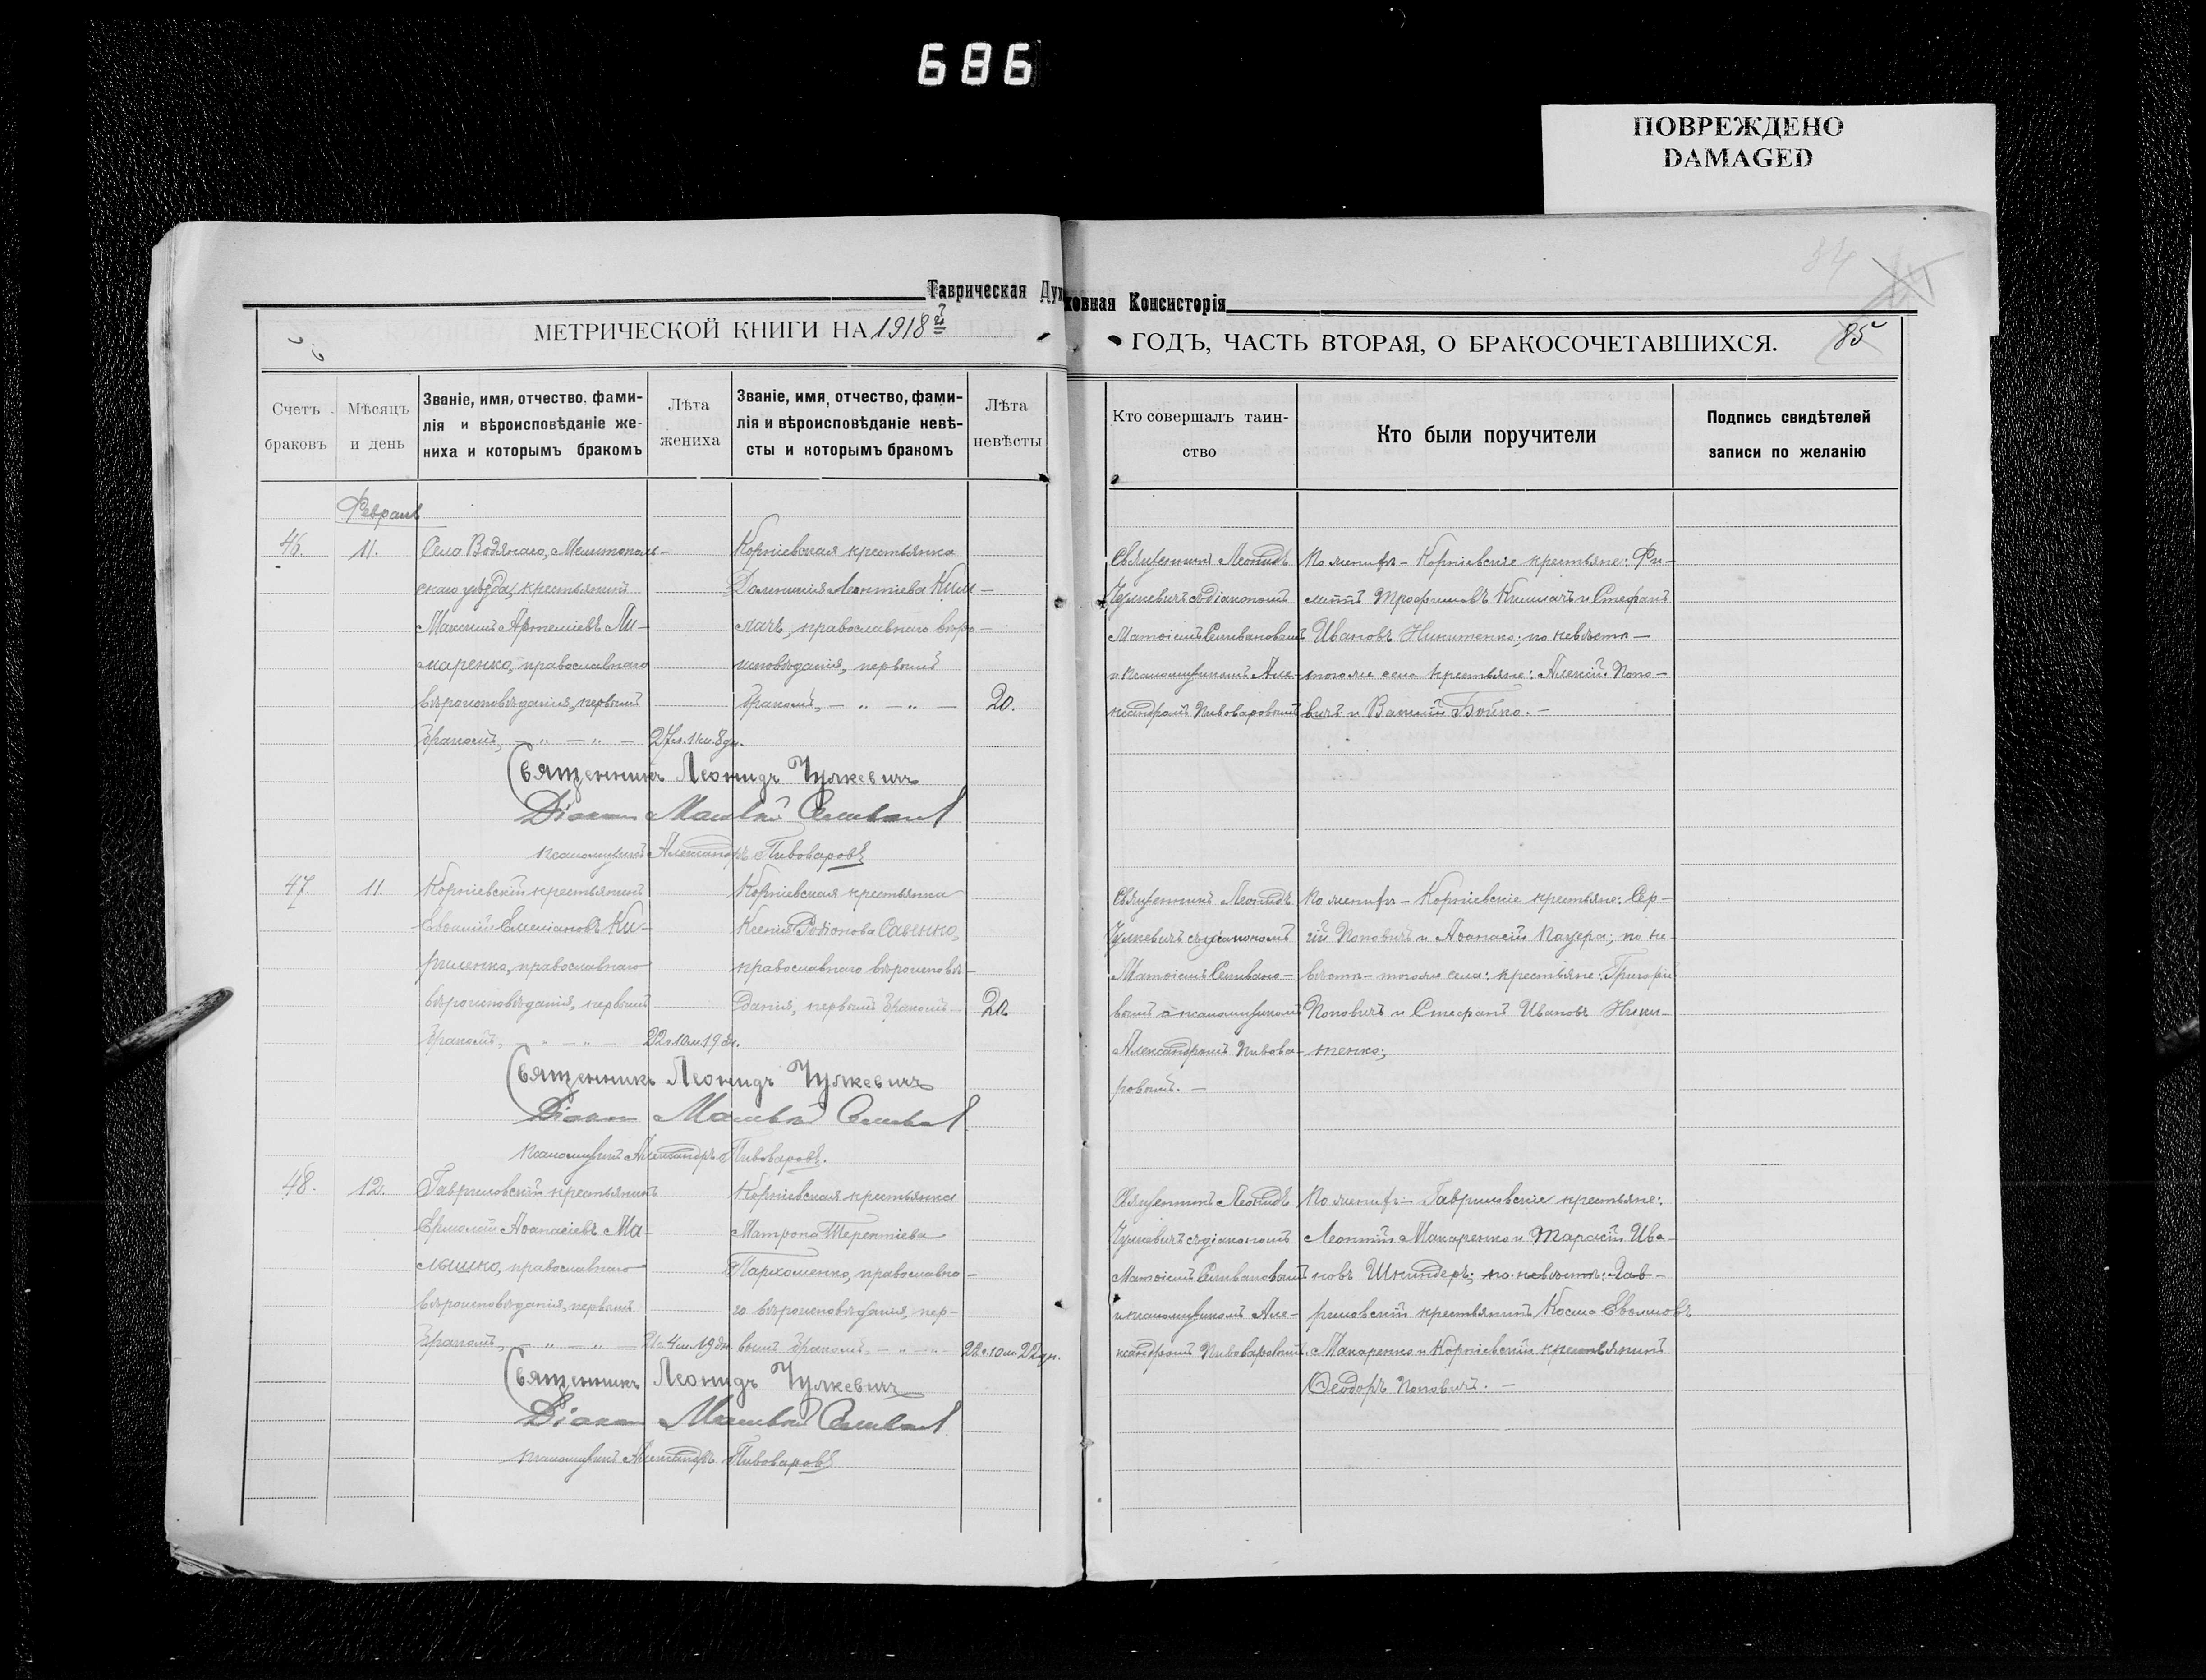 686
ПОВРЕЖДЕНО
DAMAGED
Таврическая Духовная Консисторія
МЕТРИЧЕСКОЙ КНИГИ НА 1918й
ГОДЪ, ЧАСТЬ ВТОРАЯ, О БРАКОСОЧЕТАВШИХСЯ.
84
85
Счетъ браковъ
Мѣсяцъ и день
Званіе, имя, отчество, фами-
лія и вѣроисповѣданіе же-
ниха и которымъ бракомъ
Лѣта жениха
Званіе, имя, отчество, фами-
лія и вѣроисповѣданіе невѣ-
сты и которымъ бракомъ
Лѣта невѣсты
Кто совершалъ таин-
ство
Кто были поручители
Подпись свидѣтелей
записи по желанію
Февраль
46.
11.
Села Водянаго, Мелитополь-
скаго уѣзда, крестьянинъ
Максимъ Артеміевъ Ли-
маренко, православнаго
вѣроисповѣданія, первымъ
бракомъ, — „ — „ —
27л. 1м. 8дн.
Корніевская крестьянка
Домникія Леонтіева Киш-
лачъ, православнаго вѣро-
исповѣданія, первымъ
бракомъ, — „ — „ —
20.
Священникъ Леонидъ
Чулкевичъ съ діакономъ
Матѳіемъ Селивановымъ
и псаломщикомъ Але-
ксандромъ Пивоваровымъ
По женихѣ – Корніевскіе крестьяне: Фи-
липпъ Трофимовъ Кишлачъ и Стефанъ
Ивановъ Никитенко; по невѣстѣ —
того же села крестьяне: Алексій Попо-
вичъ и Василій Бойко. —
Священникъ Леонидъ Чулкевичъ
Діаконъ Матвѣй Селиванов
Псаломщикъ Александръ Пивоваровъ
47.
11.
Корніевскій крестьянинъ
Емеліановъ Ки-
риленко, православнаго
вѣроисповѣданія, первымъ
бракомъ, — „ — „ —
22г. 10м. 19дн.
Корніевская крестьянка
Ксенія Родіонова Савенко,
православнаго вѣроисповѣ-
данія, первымъ бракомъ —
20.
Священникъ Леонидъ
Чулкевичъ съ діакономъ
Матѳіемъ Селивано-
вымъ и псаломщикомъ
Александромъ Пивова-
ровымъ. —
По женихѣ – Корніевскіе крестьяне: Сер-
гій Поповичъ и Аѳанасій; по не-
вѣстѣ – того же села: крестьяне: Григорій
Поповичъ и Стефанъ Ивановъ Ники-
тенко;
Священникъ Леонидъ Чулкевичъ
Діаконъ Матвѣй Селиванов
Псаломщикъ Александръ Пивоваровъ.
48.
12.
Гавриловскій крестьянинъ
Ермолай Аѳанасіевъ Ма-
лышко, православнаго
вѣроисповѣданія, первымъ
бракомъ, — „ — „ —
21г. 4м. 19дн.
Корніевская крестьянка
Матрона Терентіева
Пархоменко, православна-
го вѣроисповѣданія, пер-
вымъ бракомъ, — „ — „ —
22г. 10м. 22дн.
Священникъ Леонидъ
Чулкевичъ съ діакономъ
Матѳіемъ Селивановымъ
и псаломщикомъ Але-
ксандромъ Пивоваровымъ.
По женихѣ – Гавриловскіе крестьяне:
Леонтій Макаренко и Тарасій Ива-
новъ Шкиндеръ; по невѣстѣ: Гав-
риловскій крестьянинъ Косма Евѳимовъ
Макаренко и Корніевскій крестьянинъ
Ѳеодоръ Поповичъ. —
Священникъ Леонидъ Чулкевичъ
Діаконъ Матвѣй Селиванов
Псаломщикъ Александръ Пивоваровъ